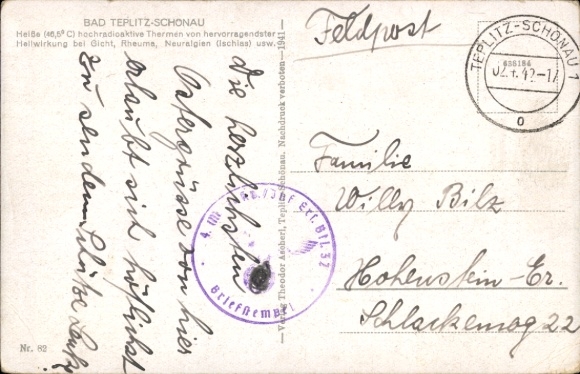 BAD TEPLITZ-SCHÖNAU
Heiße (46,5° C) hochradioaktive Thermen von hervorragendster
Heilwirkung bei Gicht, Rheuma, Neuralgien (Ischias) usw.
Die herzlichsten
Ostergrüsse von hier
erlaubt sich höflichst
zu senden
Nr. 82
Verlag Theodor Ascherl, Teplitz-Schönau. Nachdruck verboten — 1941 —
Feldpost
TEPLITZ-SCHÖNAU 1
636186
42-17
o
Familie
Willy Bilz
Hohenstein-Er.
Schlackenweg 22
Ers. Btl. 32
Briefstempel